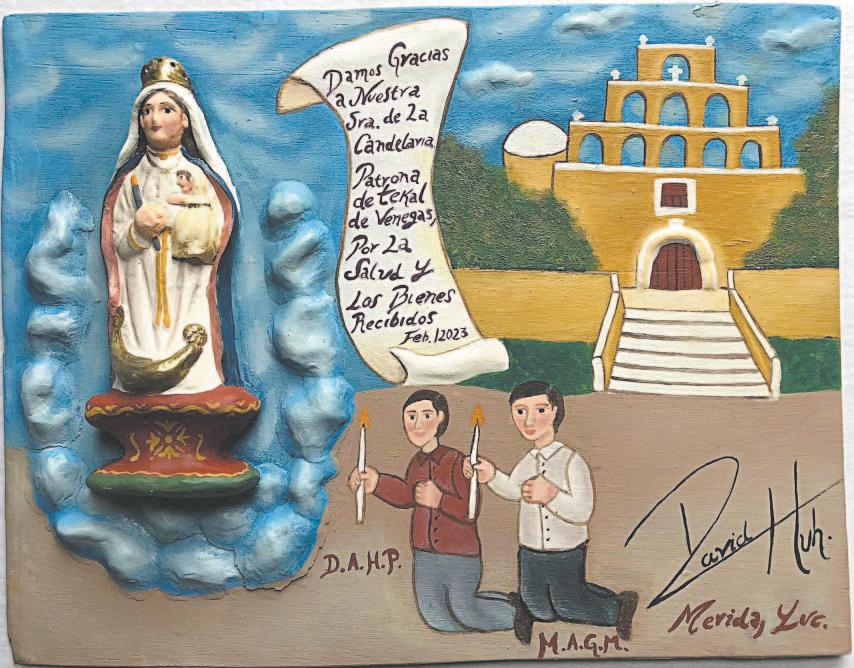 Damos Gracias
a Nuestra
Sra. de La
Candelaria
Patrona
de tekal
de Venegas,
Por La
Salud y
Los Bienes
Recibidos
Feb./2023
D.A.H.P.
M.A.G.M.
David Huh.
Merida, Yuc.